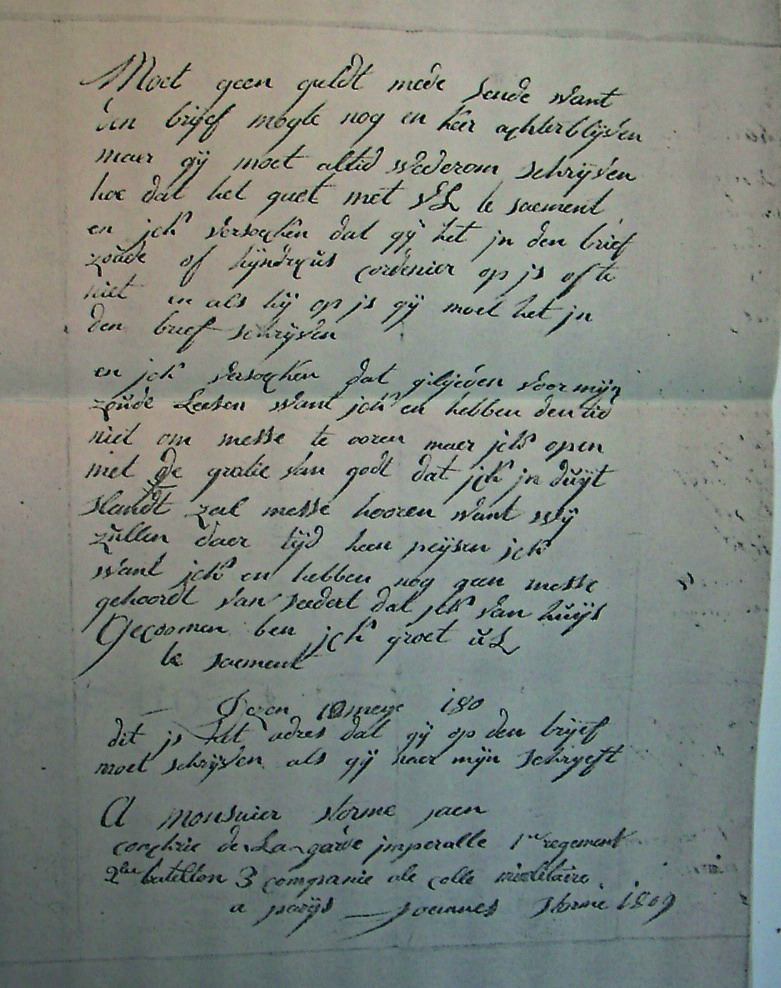 Moet geen geldt mede sende want
den brijef mogte nog en keer achterblijven
maer gij moet altid wederom schrijven
hoe dat het goet met UL te saement
en jck versoecken dat gij het jn den brief
zoude of hijndrycus cordenier op js ofte
niet en als hij op js gij moet het jn
den brief schrijven
en jck versoecken dat gilijeden voor mijn
zoude Leesen want jck en hebben den tid
niet om messe te ooren maer jck open
met de gratie van godt dat jck jn duijt
slandt zal messe hooren want wij
zullen daer tijd heen peijsen jck
want jck en hebben nog geen messe
gehoordt van seedert dat jck van huijs
Gecoomen ben jck groet UL
te saement
Dezen 10 meye 180
dit js het adres dat gij op den brijef
moet schrijven als gij naer mijn schryeft
A monsuier storme jaen
conscrie de La garde jmperalle 1er regement
2me batellon 3 compsanie ale colle mielitaire
a parijs joannes storme 1809